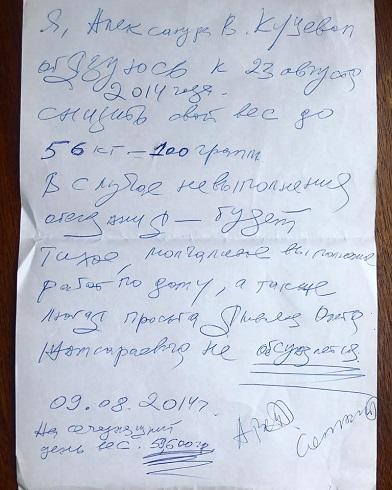 Я, Александра В. Куцевол
обязуюсь к 23 августа
2014 года.
снизить свой вес до
56 кг – 100 грамм
В случае невыполнения
– будет
Тихое, молчаливое выполнение
работ по дому, а также
любая просьба
не обсуждается
09.08.2014г.
На сегодняшний
день вес. 59,600гр